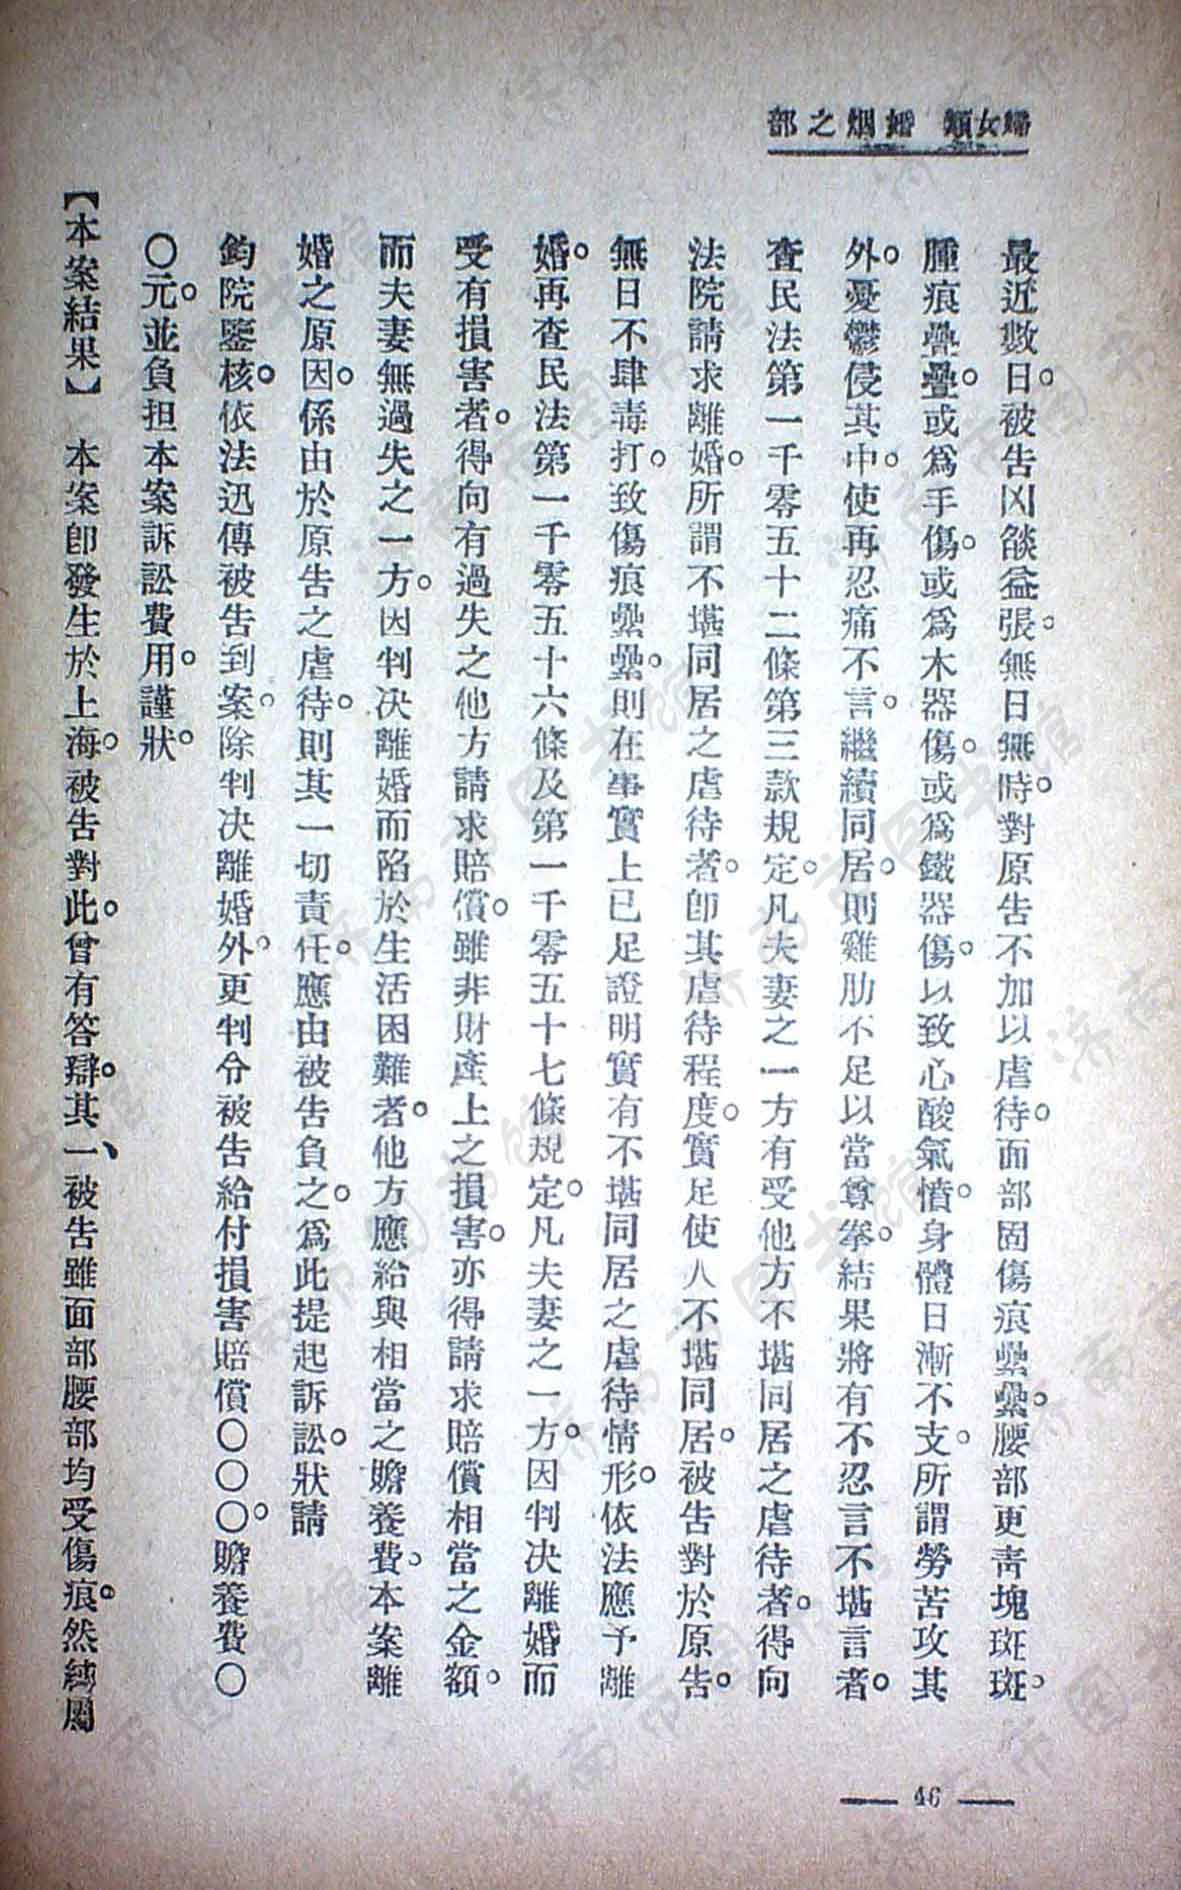 婦女類　婚姻之部
最近數日。被告凶燄益張。無日無時。對原告不加以虐待。面部固傷痕纍纍。腰部更靑塊斑斑。
腫痕疊疊。或爲手傷。或爲木器傷。或爲鐵器傷。以致心酸氣憤。身體日漸不支。所謂勞苦攻其
外。憂鬱侵其中。使再忍痛不言。繼續同居。則雞肋不足以當尊拳。結果將有不忍言不堪言者。
查民法第一千零五十二條第三款規定。凡夫妻之一方有受他方不堪同居之虐待者。得向
法院請求離婚。所謂不堪同居之虐待者。卽其虐待程度。實足使人不堪同居。被告對於原告。
無日不肆毒打。致傷痕纍纍。則在事實上已足證明實有不堪同居之虐待情形。依法應予離
婚。再查民法第一千零五十六條及第一千零五十七條規定。凡夫妻之一方。因判决離婚而
受有損害者。得向有過失之他方請求賠償。雖非財產上之損害。亦得請求賠償相當之金額。
而夫妻無過失之一方。因判决離婚而陷於生活困難者。他方應給與相當之贍養費。本案離
婚之原因。係由於原告之虐待。則其一切責任。應由被告負之。爲此提起訴訟。狀請
鈞院鑒核。依法迅傳被告到案。除判决離婚外。更判令被告給付損害賠償〇〇〇。贍養費〇
〇元。並負担本案訴訟費用。謹狀。
【本案結果】　本案卽發生於上海。被告對此。曾有答辯。其一、被告雖面部腰部均受傷痕。然純屬
46
濟南市图书馆